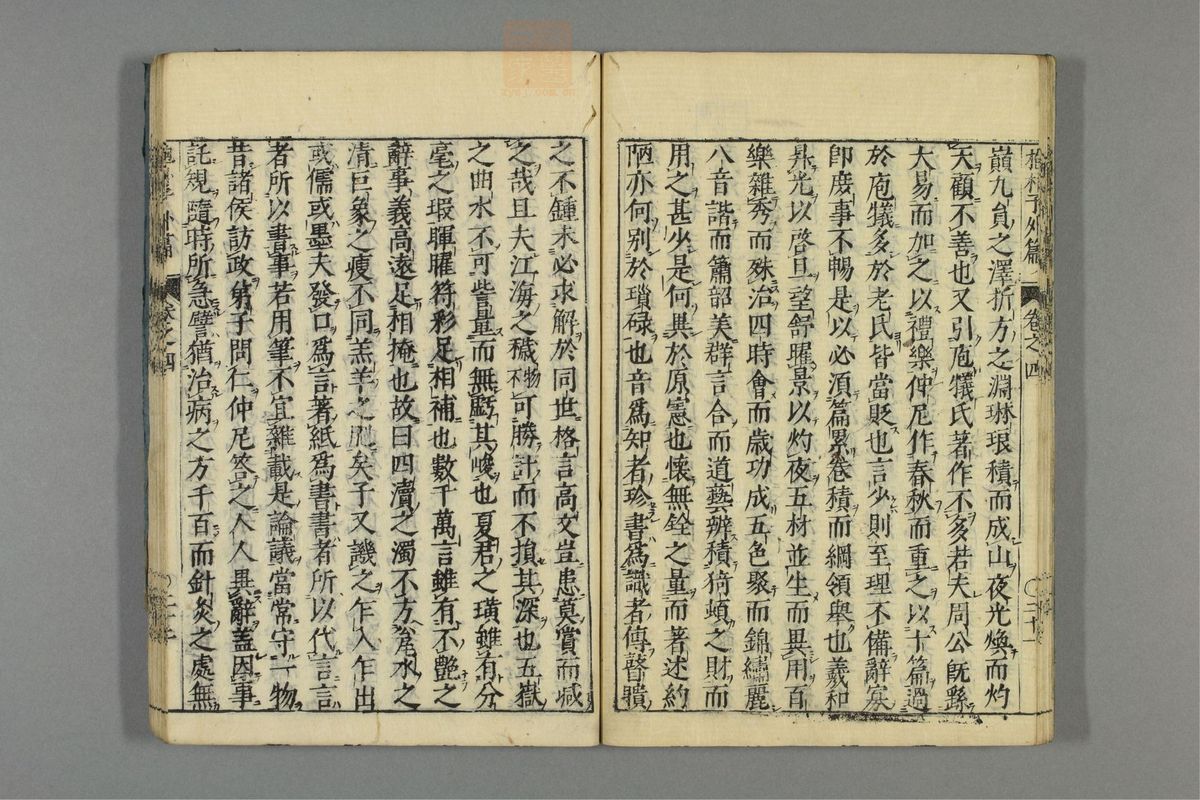 抱朴子外篇 卷之四 ○三十一
巔九員之澤折方之淵琳琅積而成山夜光煥而灼
天顧不善也又引庖犧氏著作不多若夫周公既繇
大易而加之以禮樂仲尼作春秋而重之以十篇過
於庖犧多於老氏皆當貶也言少則至理不備辭寡
卽庶事不暢是以必須篇累卷積而綱領舉也羲和
昇光以啓旦望舒曜景以灼夜五材並生而異用百
藥雜秀而殊治四時會而歲功成五色聚而錦繡麗
八音諧而簫韶美群言合而道藝辨積猗頓之財而
用之甚少是何異於原憲也懷無銓之量而著述約
陋亦何別於瑣碌也音爲知者珍書爲識者傳瞽曠
之不鍾未必求解於同世格言高文豈患莫賞而減
之哉且夫江海之穢物不可勝計而不損其深也五嶽
之曲木不可訾量而無虧其峻也夏君之璜雖有分
毫之瑕暉曜符彩足相補也數千萬言雖有不艷之
辭事義高遠足相掩也故曰四瀆之濁不方瓮水之
清巨象之瘦不同羔羊之肥矣子又譏之乍入乍出
或儒或墨夫發口爲言著紙爲書書者所以代言言
者所以書事若用筆不宜雜載是論議當常守一物
昔諸侯訪政弟子問仁仲尼答之人人異辭蓋因事
託規隨時所急譬猶治病之方千百而針灸之處無
外篇 卷之四